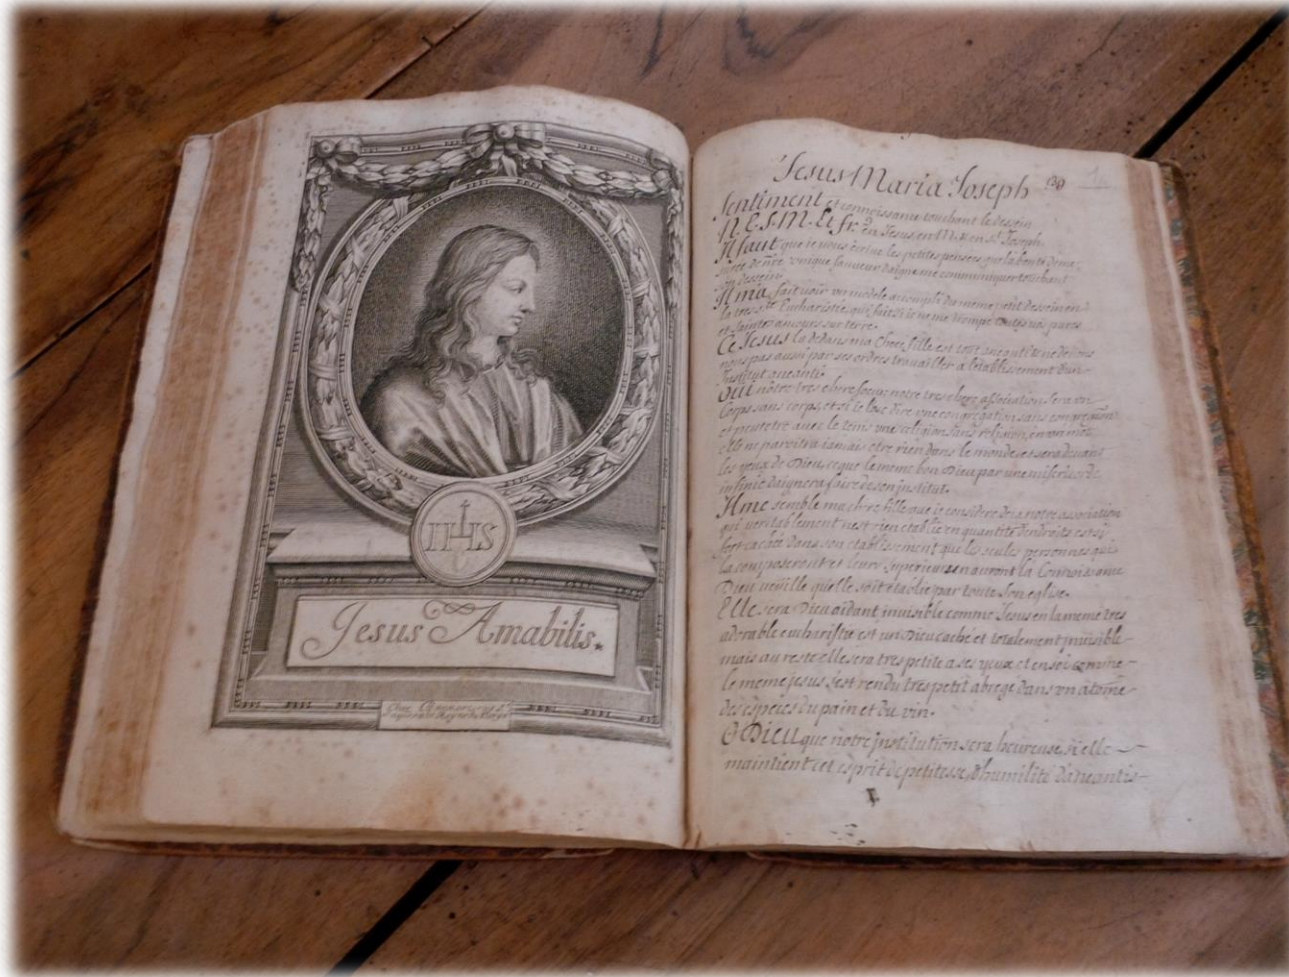 IHS
Jesus Amabilis.
Jesus Maria Joseph
Sentiment et connoissance touchant le dessein
N. E. S. M. Et fr. en Jesus, en M. et en St. Joseph.
Il faut que je vous écrive les petites pensées que la bonté
unique sauveur daigne me communiquer touchant
dessein.
Il m'a fait voir un modele accompli du meme petit dessein en
la tres Ste Eucharistie, que fait si je ne me trompe toutes nos pures
et saintes amours sur terre.
Ce Jesus la dedans ma chere fille est tout aneanti et ne devons
nous pas aussi par ses ordres travailler a l'etablissement d'un
institut aneanti
Oui notre tres chere soeur, notre tres chere association sera un
corps sans corps, et si je l'ose dire une congregation sans congregation
et peutetre avec le tems une religion sans religion, en un mot
elle ne paroitra jamais etre rien dans le monde, et sera devant
les yeux de Dieu, ce que le meme bon Dieu par une misericorde
infinie daignera faire de son institut.
Il me semble ma chere fille que je considere deja notre association
qui veritablement n'est rien etablie en quantité d'endroits et si
fort cachée dans son etablissement que les seules personnes qui
la composeront et leurs superieurs en auront la connoissance
Dieu veüille quelle soit établie par toute son eglise.
Elle sera Dieu aidant invisible comme Jesus en la meme tres
adorable eucharistie est un Dieu caché et totalement invisible
mais au reste elle sera tres petite a ses yeux et en soi comme
le meme jesus s'est rendu tres petit abregé dans un atome
des especes du pain et du vin.
O Dieu que notre institution sera heureuse, si elle
maintient cet esprit de petitesse, d'humilité d'aneantis-